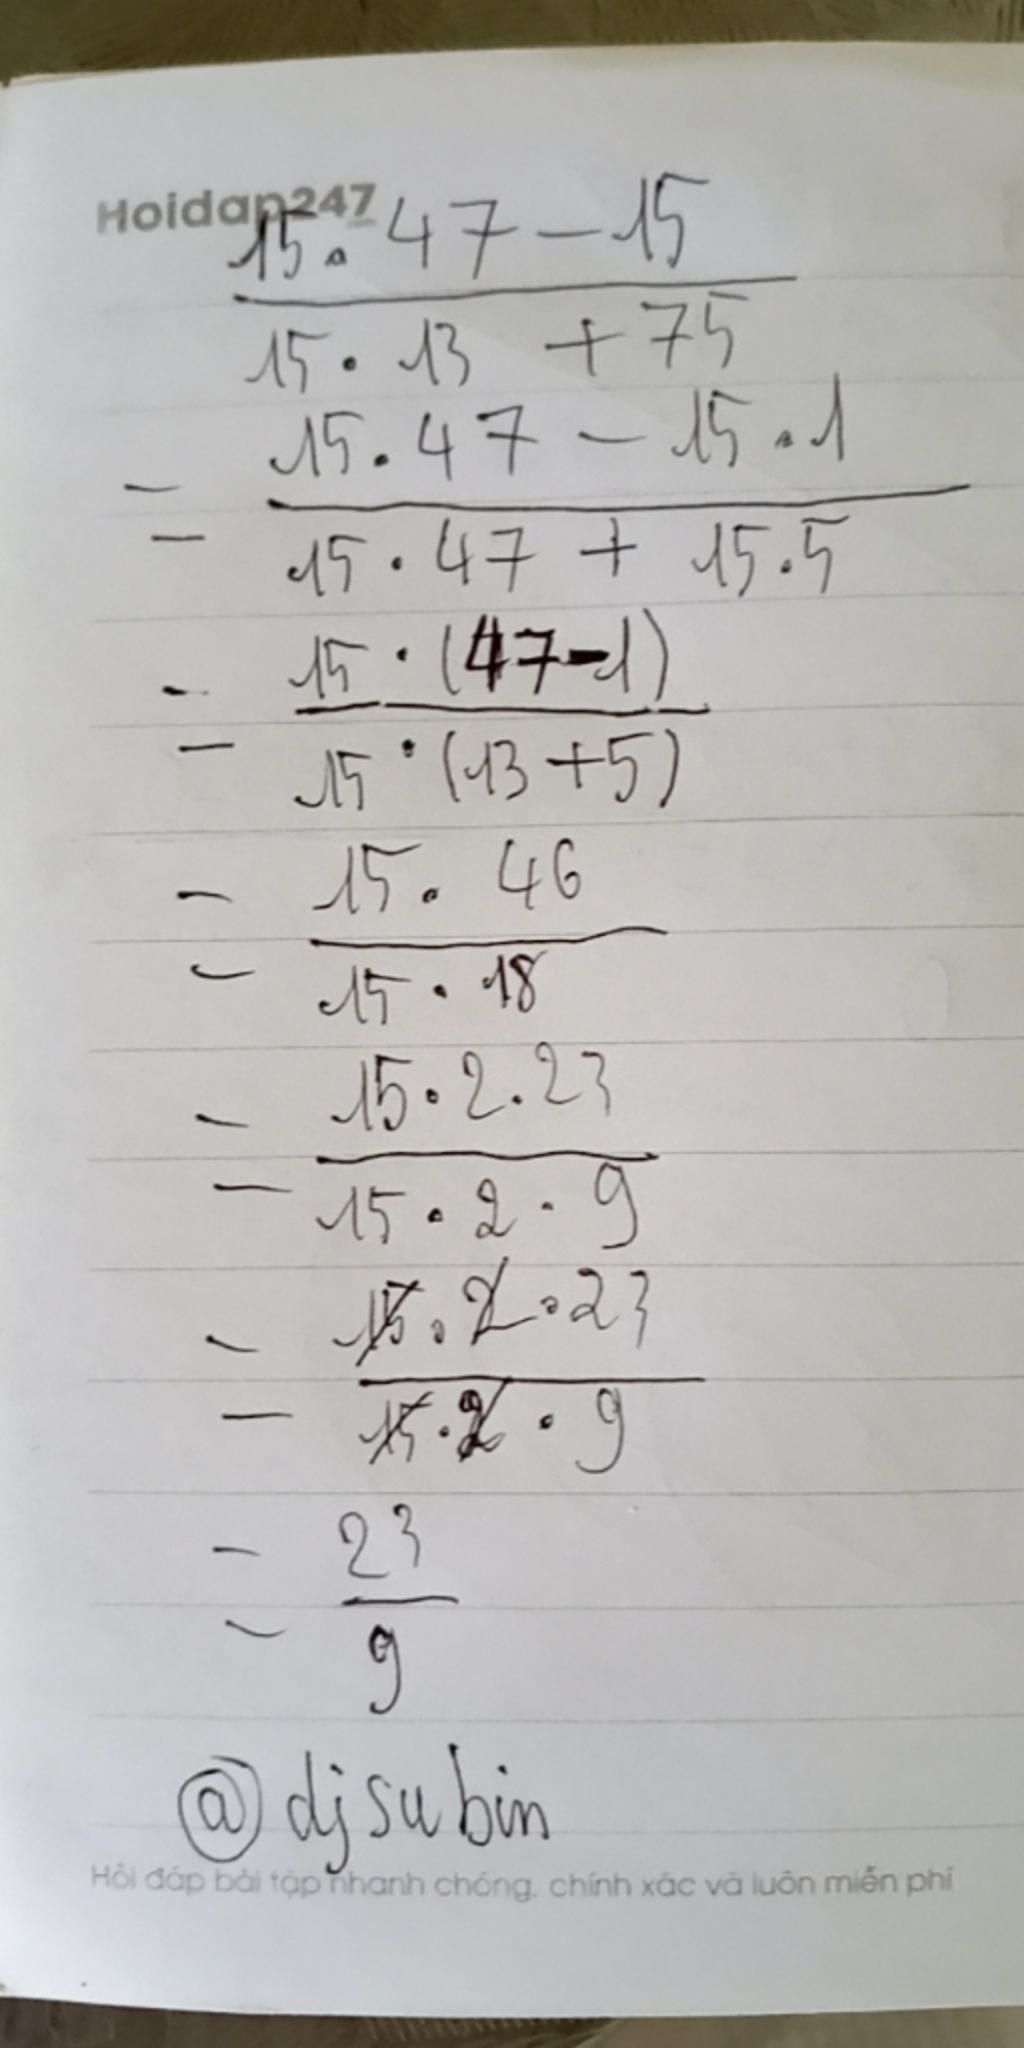 Hoidap247
15 . 47 - 15
15 . 13 + 75
= 15 . 47 - 15 . 1
15 . 47 + 15 . 5
= 15 . (47 - 1)
15 . (13 + 5)
= 15 . 46
15 . 18
= 15 . 2 . 23
15 . 2 . 9
= 15 . 2 . 23
15 . 2 . 9
= 23
9
@djsubin
Hỏi đáp bài tập nhanh chóng, chính xác và luôn miễn phí